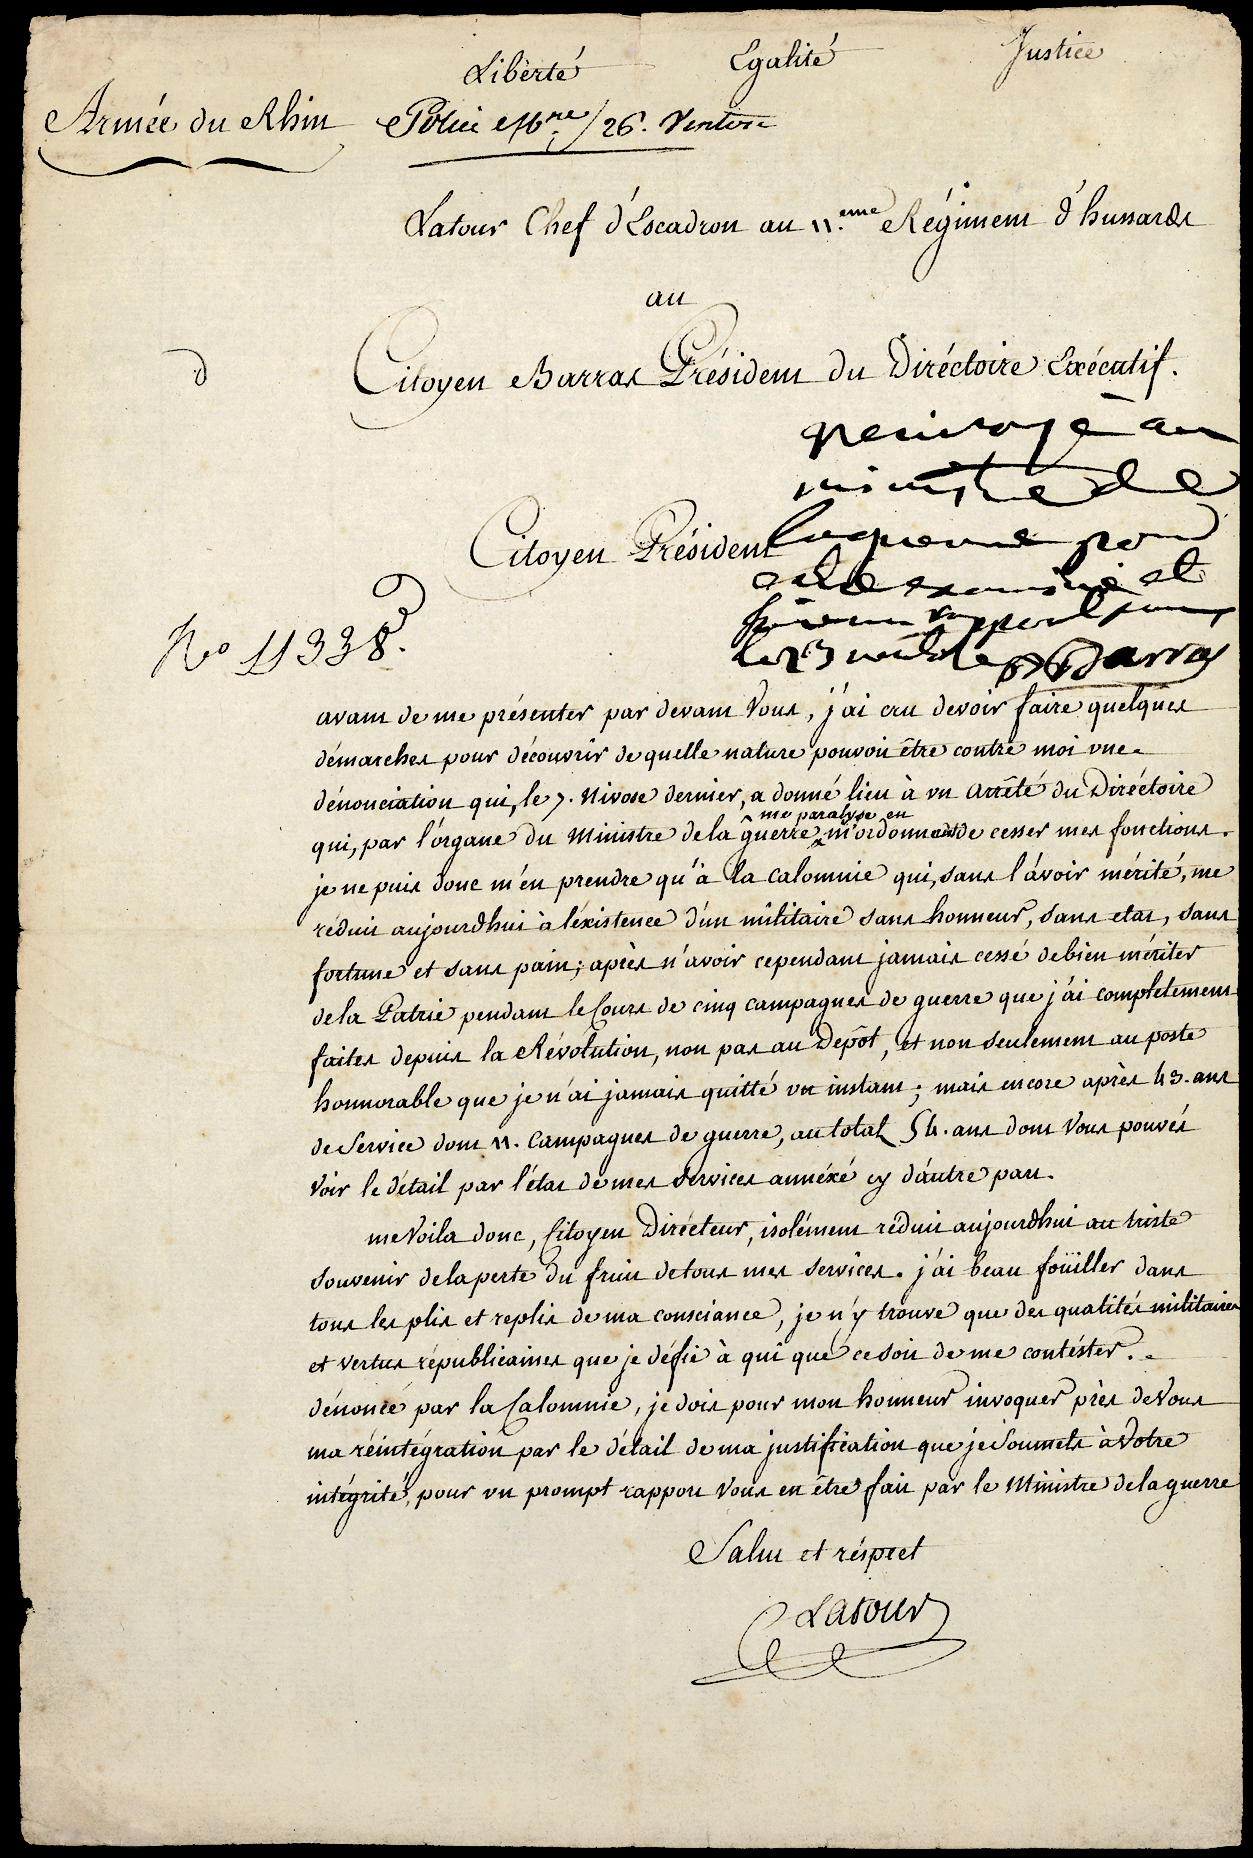 Liberté Egalité Justice
Armée du Rhin Police 26. Ventose
Latour Chef d'Escadron au 11.eme Régiment d'hussards
au
d
Citoyen Barras Président du Diréctoire Exécutif.
renvoyé au
ministre de
la guerre pour
examiné et
rapport
le 23 Barras
Citoyen Président
No 11338.
avant de me présenter par devant Vous, j'ai cru devoir faire quelques
démarches pour découvrir de quelle nature pouvoit être contre moi vne
dénonciation qui, le 7. Nivose dernier, a donné lieu à vn Arrêté du Diréctoire
me paralyse en
qui, par l'organe du Ministre de la guerre, m'ordonnant de cesser mes fonctions.
je ne puis donc m'en prendre qu'à la calomnie qui, sans l'avoir mérité, me
réduit aujourdhui à l'éxistence d'un militaire sans honneur, sans etat, sans
fortune et sans pain; après n'avoir cependant jamais cessé de bien mériter
de la Patrie pendant le Cours de cinq campagnes de guerre que j'ai completement
faites depuis la Révolution, non pas au Depôt, et non seulement au poste
honnorable que je n'ai jamais quitté vn instant; mais encore après 43. ans
de Service dont 11. Campagnes de guerre, au total 54. ans dont Vous pouvés
Voir le détail par l'état de mes services annéxé cy d'autre part.
me Voila donc, Citoyen Dirécteur, isolément réduit aujourdhui au triste
souvenir de la perte du fruit de tous mes services. j'ai beau foüiller dans
tous les plis et replis de ma consciance, je n'y trouve que des qualités militaires
et vertus républicaines que je défie à qui que ce soit de me contéster.
dénoncé par la Calomnie, je dois pour mon honneur invoquer près de Vous
ma réintégration par le détail de ma justification que je soumets à Votre
intégrité, pour vn prompt rapport Vous en être fait par le Ministre de la guerre
Salut et réspect
Latour